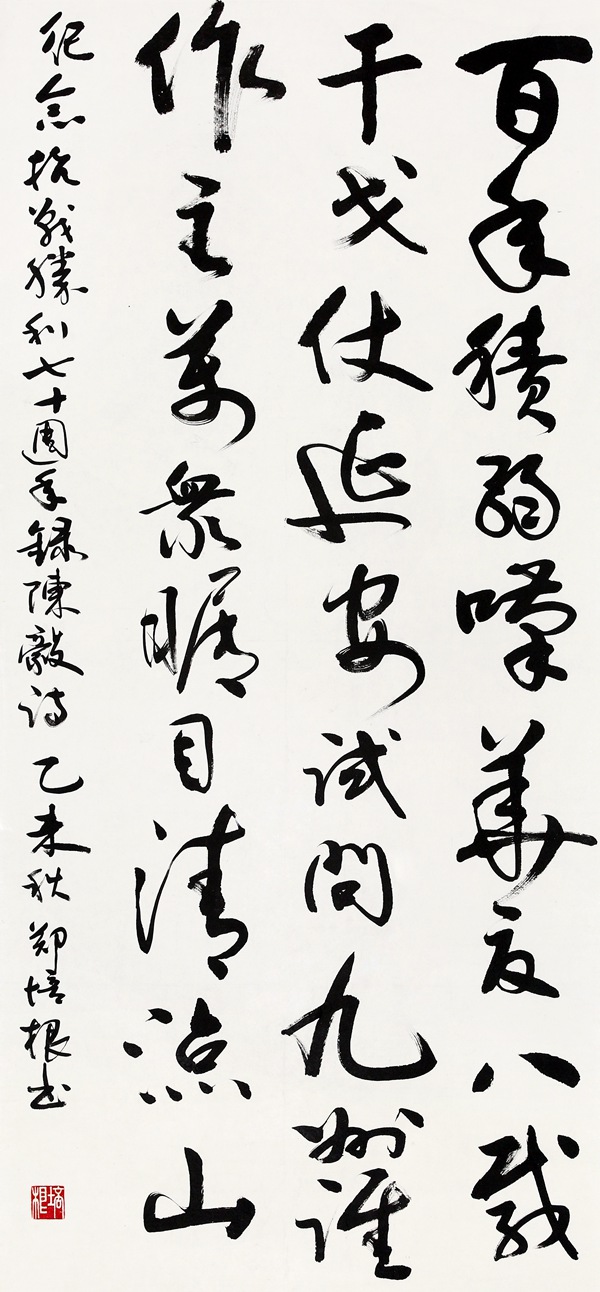 百年積弱嘆華夏八載
干戈仗延安試問九州誰
作主萬衆瞩目清涼山
紀念抗戰勝利七十週年録陳毅诗 乙未秋 郑培根书
培根